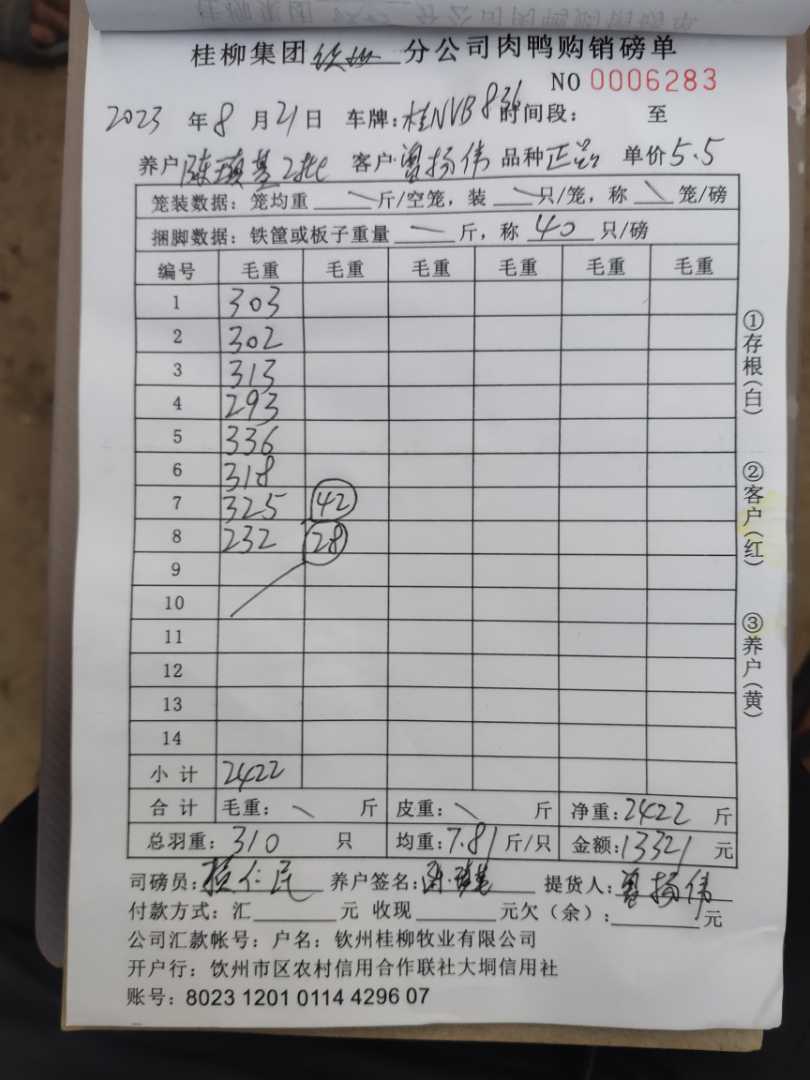 桂柳集团钦州分公司肉鸭购销磅单
NO 0006283
2023年8月21日 车牌:桂NVB836 时间段: 至
养户陈琼基2批 客户曾扬伟 品种正品 单价5.5
笼装数据:笼均重 斤/空笼,装 只/笼,称 笼/磅
捆脚数据:铁筐或板子重量 斤,称 40 只/磅
编号 毛重 毛重 毛重 毛重 毛重 毛重
1 303
2 302
3 313
4 293
5 336
6 318
7 325 42
8 232 28
9
10
11
12
13
14
小计 2422
合计 毛重: 斤 皮重: 斤 净重:2422 斤
总羽重:310 只 均重:7.81斤/只 金额:13321元
司磅员: 仁民 养户签名: 提货人:曾扬伟
付款方式:汇 元 收现 元欠(余): 元
公司汇款帐号:户名:钦州桂柳牧业有限公司
开户行:饮州市区农村信用合作联社大垌信用社
账号:8023 1201 0114 4296 07
①存根(白)
②客户(红)
③养户(黄)